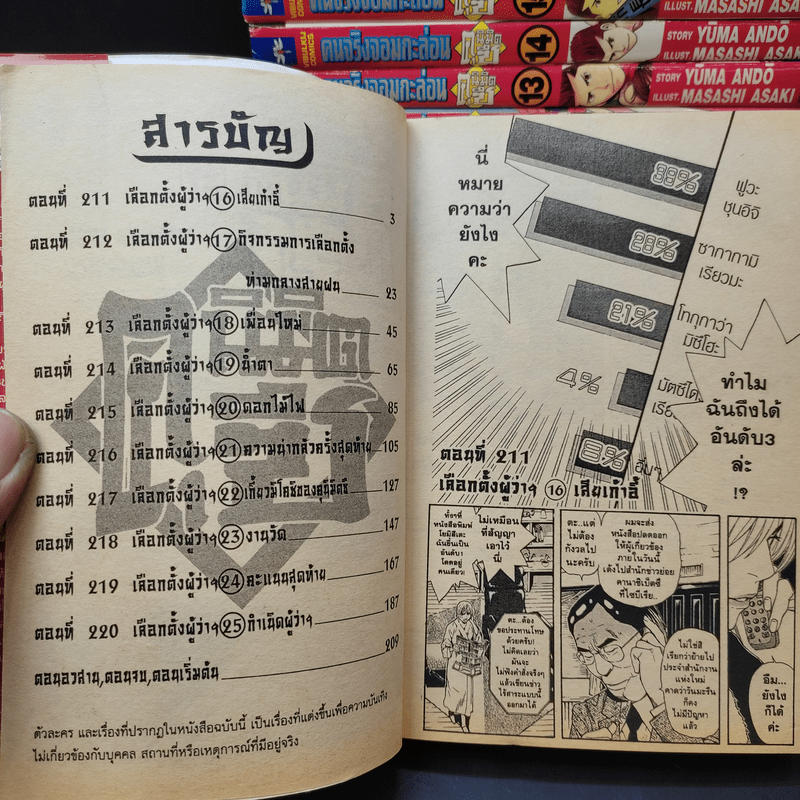 คนจริงจอมกะล่อน
STORY YŪMA ANDŌ
ILLUST. MASASHI ASAKI
14
คนจริงจอมกะล่อน
STORY YŪMA ANDŌ
ILLUST. MASASHI ASAKI
13
สารบัญ
ตอนที่ 211 เลือกตั้งผู้ว่าฯ ⑯ เสียเก้าอี้ 3
ตอนที่ 212 เลือกตั้งผู้ว่าฯ ⑰ กิจกรรมการเลือกตั้ง
ท่ามกลางสายฝน 23
ตอนที่ 213 เลือกตั้งผู้ว่าฯ ⑱ เพื่อนใหม่ 45
ตอนที่ 214 เลือกตั้งผู้ว่าฯ ⑲ น้ำตา 65
ตอนที่ 215 เลือกตั้งผู้ว่าฯ ⑳ ดอกไม้ไฟ 85
ตอนที่ 216 เลือกตั้งผู้ว่าฯ ㉑ ความน่ากลัวครั้งสุดท้าย 105
ตอนที่ 217 เลือกตั้งผู้ว่าฯ ㉒ เกี้ยวมิโคชิของคุนิมิตซึ 127
ตอนที่ 218 เลือกตั้งผู้ว่าฯ ㉓ งานวัด 147
ตอนที่ 219 เลือกตั้งผู้ว่าฯ ㉔ คะแนนสุดท้าย 167
ตอนที่ 220 เลือกตั้งผู้ว่าฯ ㉕ กำเนิดผู้ว่าฯ 187
ตอนอวสาน,ตอนจบ,ตอนเริ่มต้น 209
ตัวละคร และเรื่องที่ปรากฏในหนังสือฉบับนี้ เป็นเรื่องที่แต่งขึ้นเพื่อความบันเทิง
ไม่เกี่ยวข้องกับบุคคล สถานที่หรือเหตุการณ์ที่มีอยู่จริง
นี่
หมาย
ความว่า
ยังไง
คะ
38%
ฟูวะ
ชุนอิจิ
28%
ซากากามิ
เรียวมะ
21%
โทกุกาว่า
มิซึโฮะ
4%
มัตซึได
เรีย
8%
อื่นๆ
ทำไม
ฉันถึงได้
อันดับ3
ล่ะ
!?
ตอนที่ 211
เลือกตั้งผู้ว่าฯ ⑯ เสียเก้าอี้
ไม่เหมือน
ที่สัญญา
เอาไว้
นี่
คะ...ต้อง
ขอประทานโทษ
ด้วยครับ!
ไม่คิดเลยว่า
มันจะ
ไม่ฟังคำสั่งจริงๆ
แล้วเขียนข่าว
ไร้สาระแบบนี้
ออกมาได้
ตะ...แต่
ไม่ต้อง
กังวลไป
นะครับ
ผมจะส่ง
หนังสือปลดออก
ให้ผู้เกี่ยวข้อง
ภายในวันนี้
เด้งไปสำนักข่าวย่อย
คานาซิเบ็ตซึ
ที่ไซบีเรีย...
ไม่ใช่สิ
เรียกว่าย้ายไป
ประจำสำนักงาน
แห่งใหม่
คาดว่ามะรืน
ก็คง
ไม่มีปัญหา
แล้ว
อืม...
ยังไง
ก็ได้
ค่ะ